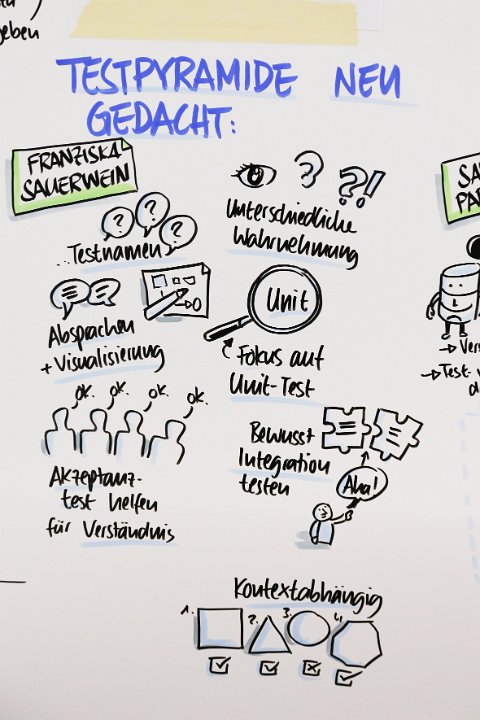 geben
TESTPYRAMIDE NEU
GEDACHT:
FRANZISKA
SAUERWEIN
? ? ?
...Testnamen
? ?!
Unterschiedliche
Wahrnehmung
Absprachen
+ Visualisierung
Unit
Fokus auf
Unit-Test
ok. ok. ok. ok.
Akzeptanz-
test helfen
für Verständnis
Bewusst
Integration
testen
Aha!
Kontextabhängig
1. 2. 3. 4.
SA
PA
→ Vers
→ Test-